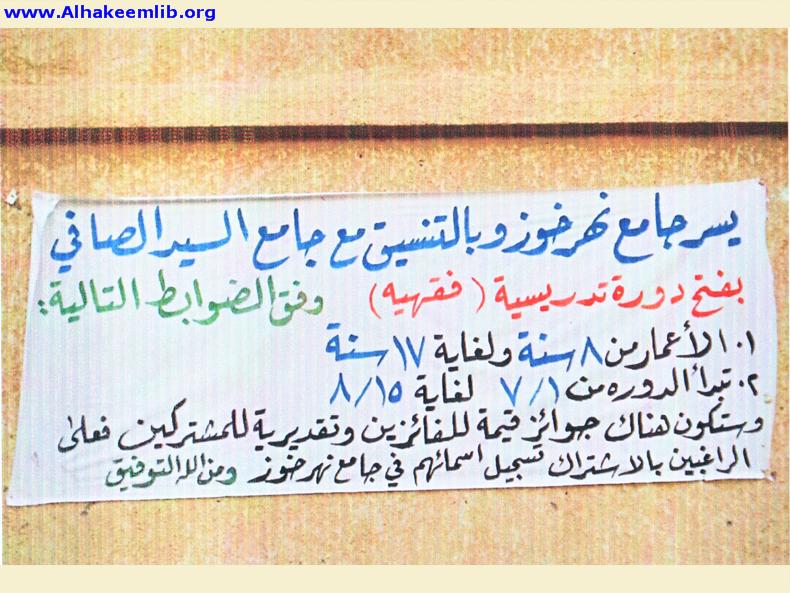 www.Alhakeemlib.org
يسر جامع نهر خوز وبالتنسيق مع جامع السيد الصافي
بفتح دورة تدريسية (فقهيه) وفق الضوابط التالية:
١. الأعمار من ٨ سنة ولغاية ١٧ سنة
٢. تبدأ الدوره من ٧/١ لغاية ٨/١٥
وستكون هناك جوائز قيمة للفائزين وتقديرية للمشتركين فعلى
الراغبين بالاشتراك تسجيل اسمائهم في جامع نهر خوز ومن الله التوفيق